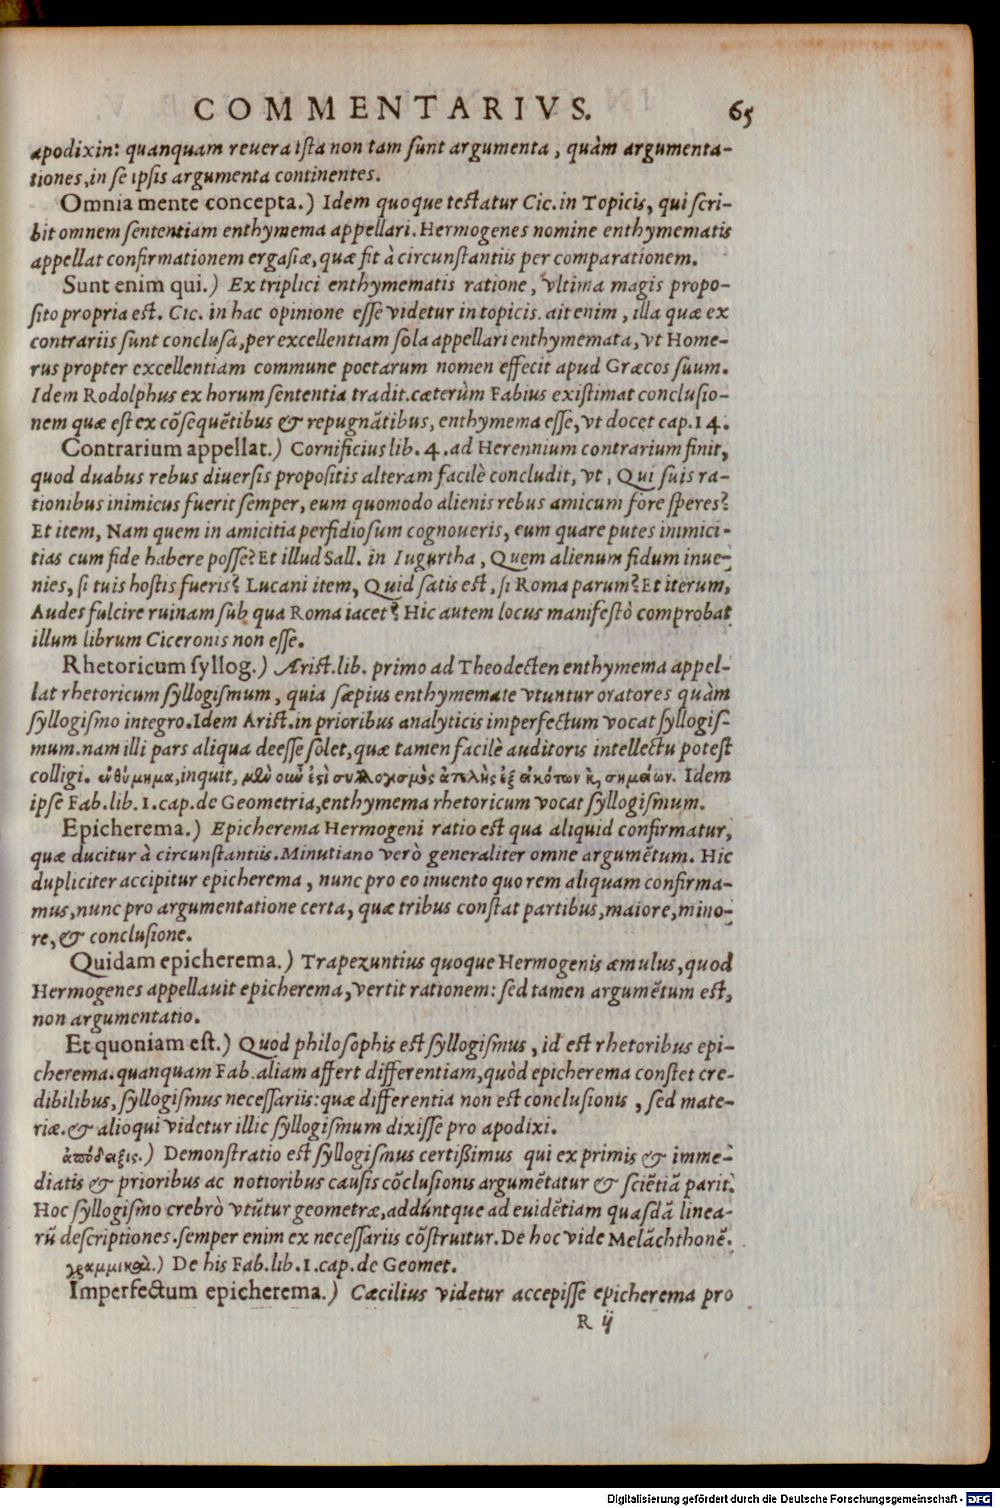 COMMENTARIVS. 65
apodixin: quanquam reuera ista non tam sunt argumenta, quàm argumenta-
tiones, in se ipsis argumenta continentes.
Omnia mente concepta.) Idem quoque testatur Cic. in Topicis, qui scri-
bit omnem sententiam enthymema appellari. Hermogenes nomine enthymematis
appellat confirmationem ergasiæ, quæ fit à circunstantiis per comparationem.
Sunt enim qui.) Ex triplici enthymematis ratione, vltima magis propo-
sito propria est. Cic. in hac opinione esse videtur in topicis. ait enim, illa quæ ex
contrariis sunt conclusa, per excellentiam sola appellari enthymemata, vt Home-
rus propter excellentiam commune poetarum nomen effecit apud Græcos suum.
Idem Rodolphus ex horum sententia tradit. cæterùm Fabius existimat conclusio-
nem quæ est ex cõsequẽtibus & repugnãtibus, enthymema esse, vt docet cap. 14.
Contrarium appellat.) Cornificius lib. 4. ad Herennium contrarium finit,
quod duabus rebus diuersis propositis alteram facilè concludit, vt, Qui suis ra-
tionibus inimicus fuerit semper, eum quomodo alienis rebus amicum fore speres?
Et item, Nam quem in amicitia perfidiosum cognoueris, eum quare putes inimici-
tias cum fide habere posse? Et illud Sall. in Iugurtha, Quem alienum fidum inue-
nies, si tuis hostis fueris? Lucani item, Quid satis est, si Roma parum? Et iterum,
Audes fulcire ruinam sub qua Roma iacet? Hic autem locus manifestò comprobat
illum librum Ciceronis non esse.
Rhetoricum syllog.) Arist. lib. primo ad Theodecten enthymema appel-
lat rhetoricum syllogismum, quia sæpius enthymemate vtuntur oratores quàm
syllogismo integro. Idem Arist. in prioribus analyticis imperfectum vocat syllogis-
mum. nam illi pars aliqua deesse solet, quæ tamen facilè auditoris intellectu potest
colligi. ἐνθύμημα, inquit, μὲν οὖν ἐστὶ συλλογισμὸς ἀτελὴς ἐξ εἰκότων κ̀ σημείων. Idem
ipse Fab. lib. 1. cap. de Geometria, enthymema rhetoricum vocat syllogismum.
Epicherema.) Epicherema Hermogeni ratio est qua aliquid confirmatur,
quæ ducitur à circunstantiis. Minutiano verò generaliter omne argumẽtum. Hic
dupliciter accipitur epicherema, nunc pro eo inuento quo rem aliquam confirma-
mus, nunc pro argumentatione certa, quæ tribus constat partibus, maiore, mino-
re, & conclusione.
Quidam epicherema.) Trapezuntius quoque Hermogenis æmulus, quod
Hermogenes appellauit epicherema, vertit rationem: sed tamen argumẽtum est,
non argumentatio.
Et quoniam est.) Quod philosophis est syllogismus, id est rhetoribus epi-
cherema. quanquam Fab. aliam affert differentiam, quòd epicherema constet cre-
dibilibus, syllogismus necessariis: quæ differentia non est conclusionis, sed mate-
riæ. & alioqui videtur illic syllogismum dixisse pro apodixi.
ἀπόδειξις.) Demonstratio est syllogismus certißimus qui ex primis & imme-
diatis & prioribus ac notioribus causis cõclusionis argumẽtatur & sciẽtiã parit.
Hoc syllogismo crebrò vtũtur geometræ, addúntque ad euidẽtiam quasdã linea-
rũ descriptiones. semper enim ex necessariis cõstruitur. De hoc vide Melãchthonẽ.
γραμμικαὶ.) De his Fab. lib. 1. cap. de Geomet.
Imperfectum epicherema.) Cæcilius videtur accepisse epicherema pro
R ij
Digitalisierung gefördert durch die Deutsche Forschungsgemeinschaft - DFG